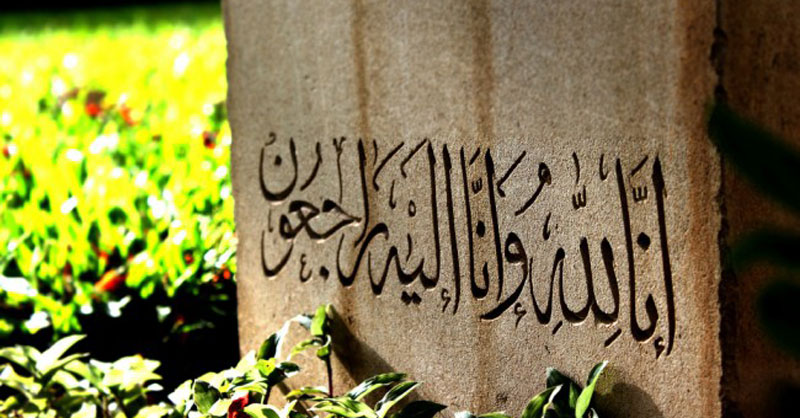 إنَّا لِلّٰهِ وَإنَّا إليْه راجعون